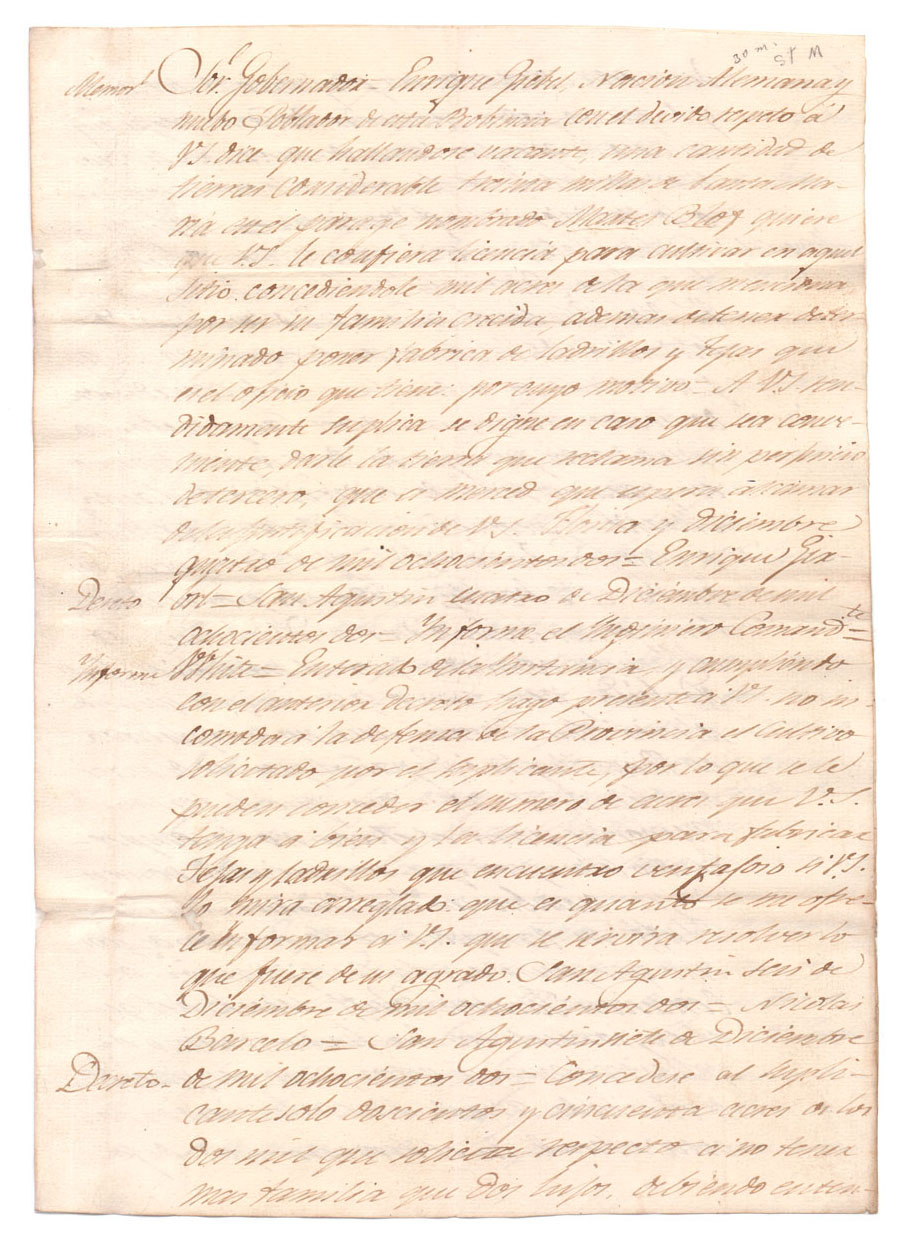 30 m. St M
Memorl Sor. Gobernador = Enrique Nacion Alemana y
nuebo Poblador de esta Probincia con el devido respeto á
V.S. dice que hallandose vacante, una cantidad de
tierras considerable treinta millas de Santa Ma-
ria en el parage nombrado quiere
que V.S. le confiera licencia para cultivar en aquel
sitio concediendole mil acres de la que menciona
por ser su familia crecida, ademas de tener deter-
minado poner fabrica de ladrillos y tejas que
es el oficio que tiene: por cuyo motivo = A V.S. ren-
didamente suplica se digne en caso que sea conve-
niente, darle la tierra que reclama sin perjuicio
de tercero, que es merced que espera alcanzar
de la de V.S. Florida y diciembre
quatro de mil ochocientos dos = Enrique
Decreto = San Agustin cuatro de Diciembre de mil
ochocientos dos = Informe el Ingeniero Comandte =
Informe White = Enterado de la Instancia y cumpliendo
con el anterior Decreto hago presente á V.S. no in-
comodar á la defensa de la Provincia el Cultivo
solicitado por el suplicante, por lo que se le
pueden conceder el numero de acres que V.S.
tenga á bien y la licencia para fabricar
Tejas y ladrillos que encuentro ventajoso si V.S.
lo mira arreglado: que es quanto se me ofre-
ce Informar á V.S. que se servira resolver lo
que fuere de su agrado. San Agustin seis de
Diciembre de mil ochocientos dos = Nicolas
Barcelo = San Agustin siete de Diciembre
Decreto - de mil ochocientos dos = Concedese al supli-
cante solo doscientos y cincuenta acres de los
dos mil que solicita respecto á no tener
mas familia que dos hijos, debiendo enten-